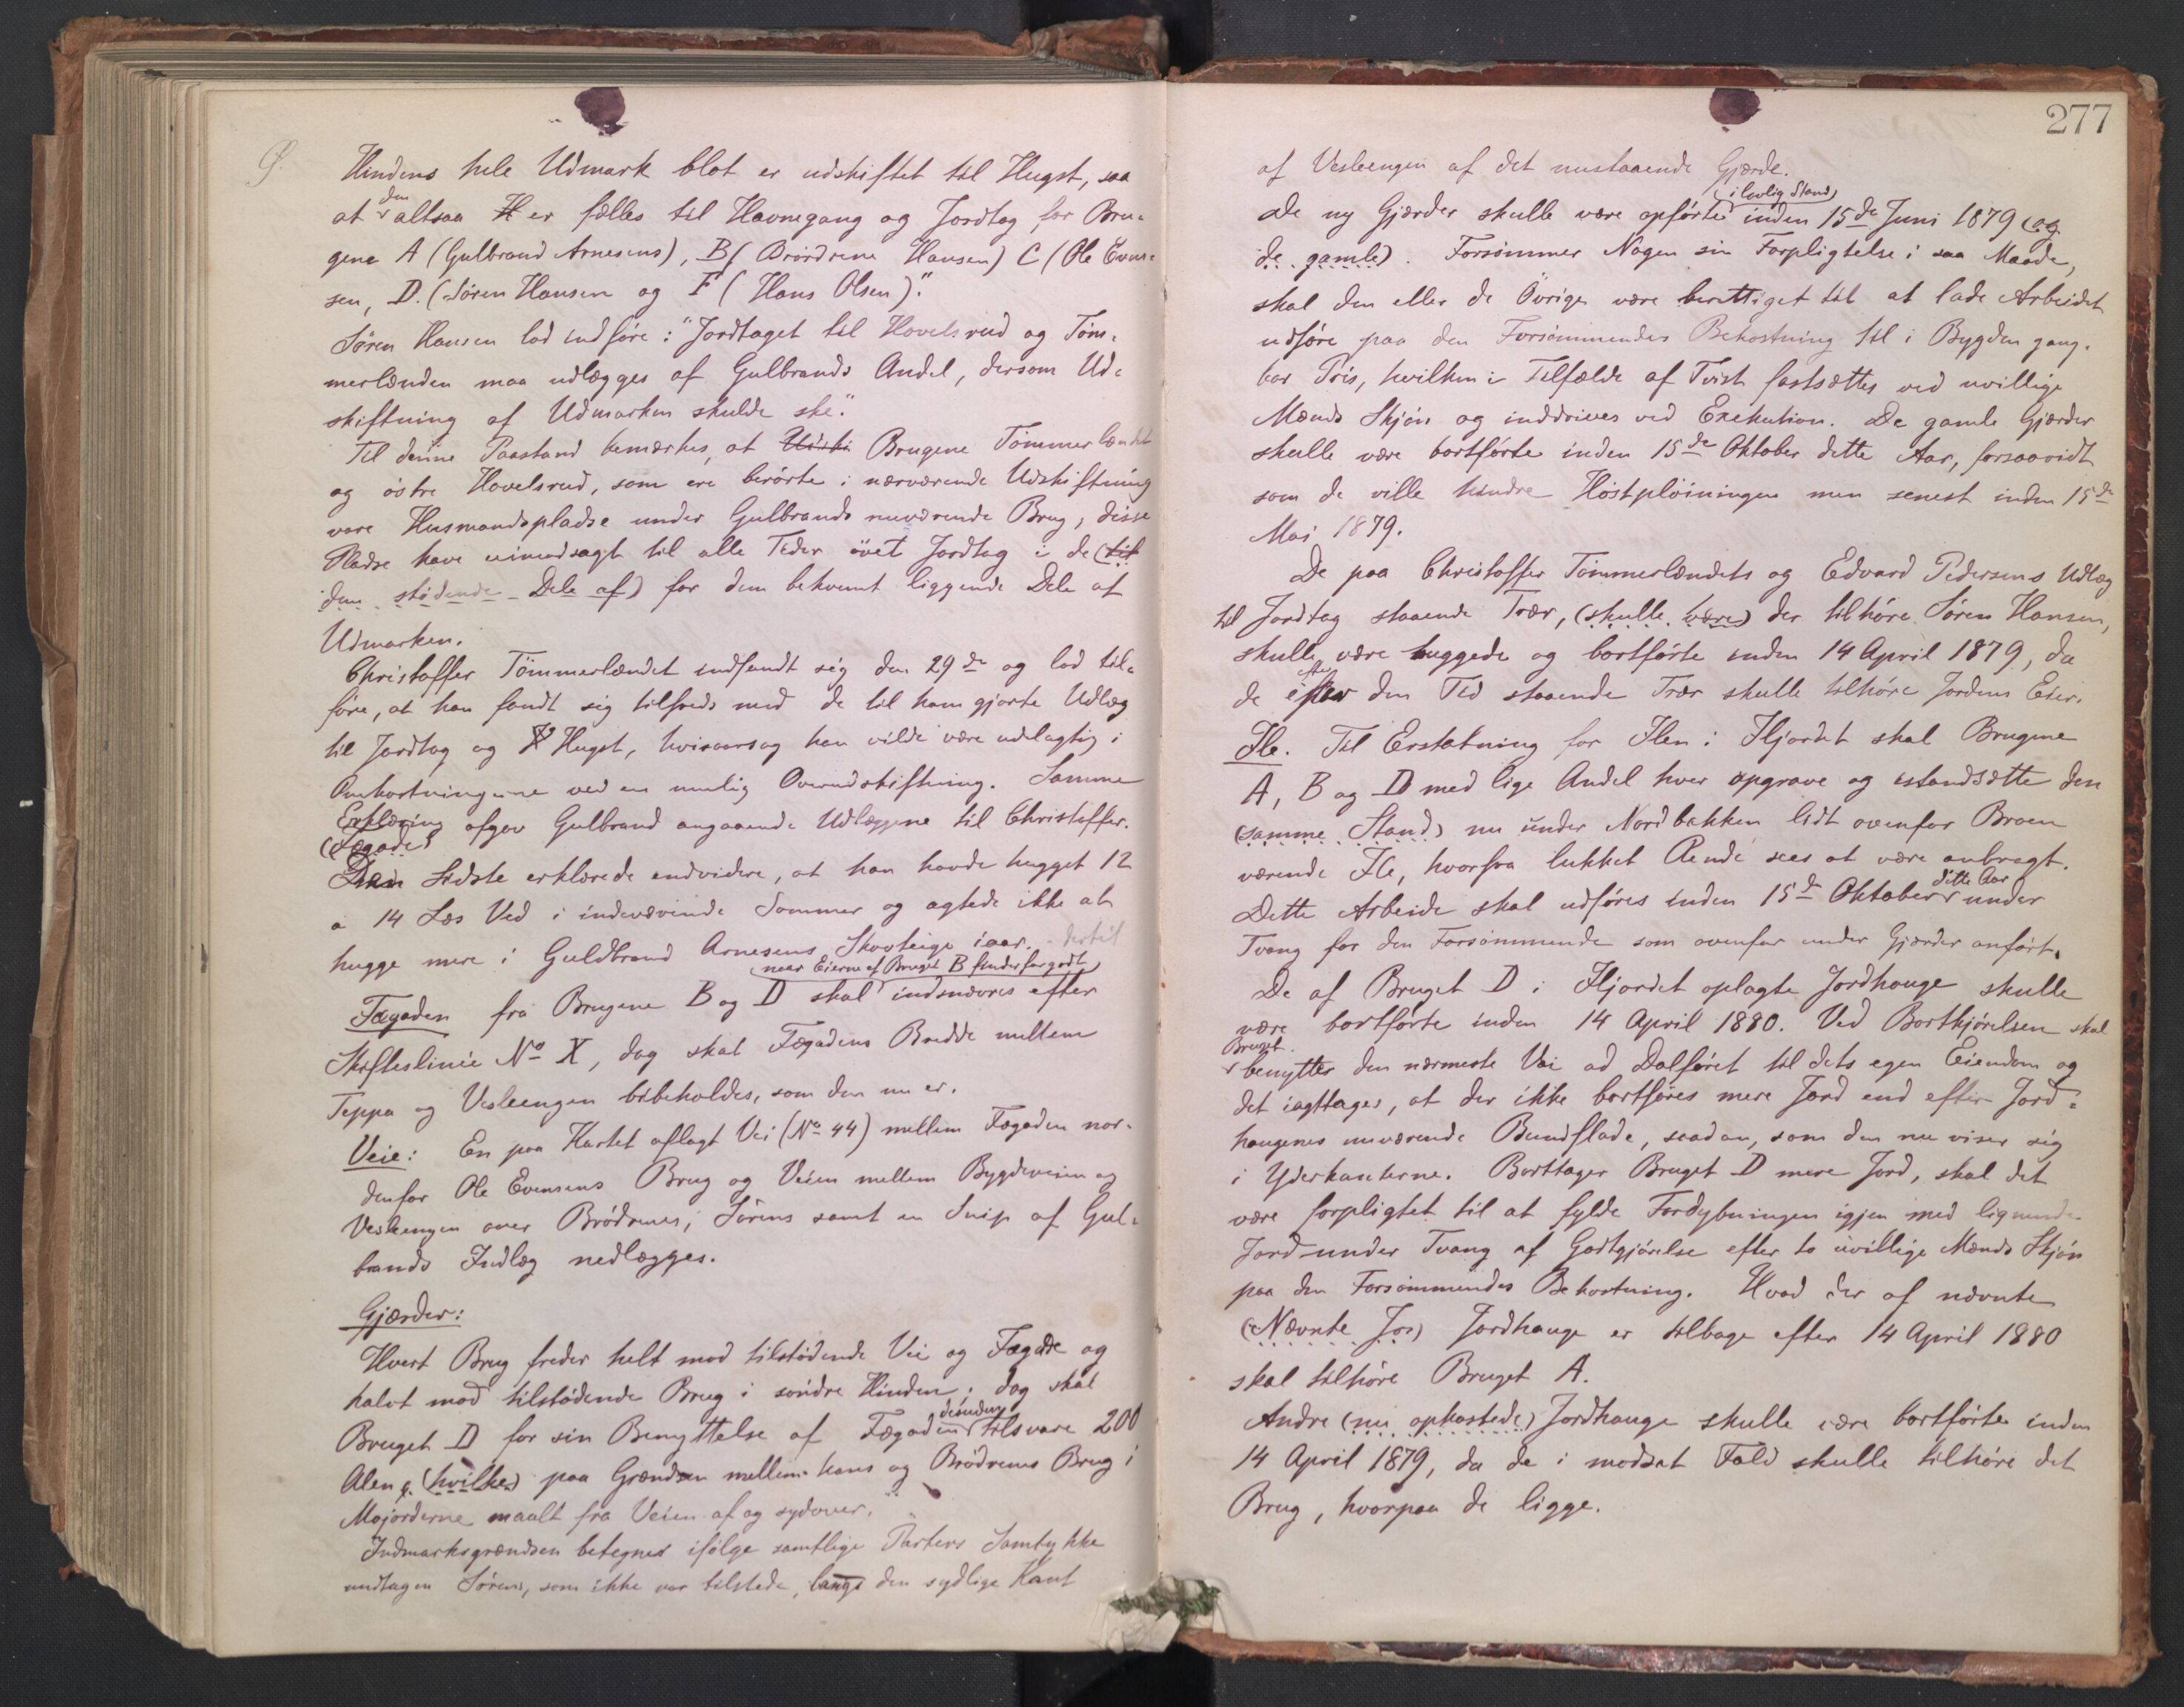 Hindens hele Udmark blot er udskiftet til Hugst, saa
at den altsaa H er fælles til Havnegang og Jordtag for Bru-
gene A (Gulbrand Arnesens), B (Brødrene Hansen) C (Ole Even-
sen, D. (Søren Hansen og F (Hans Olsen)."
Søren Hansen lod indføre: "Jordtaget til Hovelsrud og Tøm-
merlænden maa udlægges af Gulbrands Andel, dersom Ud-
skiftning af Udmarken skulde ske."
Til denne Paastand bemærkes, at Udski Brugene Tömmerlændet
og östre Hovelsrud, som ere berørte i nærværende Udskiftning
vare Husmandspladse under Gulbrands nuværende Brug, disse
Pladse have uimodsagt til alle Tider övet Jordtag i de (til
dem stödende Dele af) for dem bekvemt liggende Dele af
Udmarken.
Christoffer Tömmerlændet indfandt sig den 29de og lod til-
føre, at han fandt sig tilfreds med de til ham gjorte Udlæg
til Jordtag og Hugst, hvisaarsag han vilde være udelagtig i
Omkostningerne ved en mulig Overudskiftning. Samme
Erklæring afgav Gulbrand angaaende Udlæggene til Christoffer.
(Fægade)
Den Sidste erklærede endvidere, at han havde hugget 12
a 14 Læs Ved i indeværende Sommer og agtede ikke at
hugge mere i Guldbrand Arnesens Skovteige iaar. dertil
(naar Eierne af Bruget B finder for godt)
Fægaden fra Brugene B og D skal indsnævres efter
Skifteslinie No X, dog skal Fægadens Bredde mellem
Teppa og Vesleengen bibeholdes, som den nu er.
Veie: En paa Kartet aflagt Vei (No 44) mellem Fægaden nor-
denfor Ole Evensens Brug og Veien mellem Bygdeveien og
Vesleengen over Brödrenes, Sörens samt en Snip af Gul-
brands Indlæg nedlægges.
Gjærder:
Hvert Brug freder helt mod tilstødende Vei og Fægade og
halvt mod tilstødende Brug i søndre Hinden; dog skal
Bruget D for sin Benyttelse af Fægaden desuden tilsvare 200
Alen (hvilke) paa Grændsen mellem hans og Brödrenes Brug i
Mojorderne maalt fra Veien af og sydover.
Indmarksgrændsen betegnes ifølge samtlige Parters Samtykke
undtagen Sörens, som ikke var tilstede, langs den sydlige Kant
277
af Vesleengen af det nustaaende Gjærde.
De ny Gjærder skulle være opførte (i lovlig Stand) inden 15de Juni 1879 (og
de gamle). Forsømmer Nogen sin Forpligtelse i saa Maade,
skal den eller de Övrige være berettiget til at lade Arbeidet
udføre paa den Forsømmendes Bekostning til i Bygden gang-
bar Pris, hvilken i Tilfælde af Tvist fastsættes ved uvillige
Mænds Skjön og inddrives ved Exekution. De gamle Gjærder
skulle være bortførte inden 15de Oktober dette Aar, forsaavidt
som de ville hindre Höstplöiningen men senest inden 15de
Mai 1879.
De paa Christoffer Tömmerlændets og Edvard Pedersens Udlæg
til Jordtag staaende Trær, (skulle være) der tilhöre Sören Hansen,
skulle være huggede og bortførte inden 14 April 1879, da
de efter den Tid staaende Trær skulle tilhöre Jordens Eier.
Ile. Til Erstatning for Ilen i Iljordet skal Brugene
A, B og D med lige Andel hver opgrave og istandsætte den
(samme Stand) nu under Nordbakken lidt ovenfor Broen
værende Ile, hvorfra lukket Rende sees at være anbragt.
Dette Arbeide skal udføres inden 15de Oktober dette Aar under
Tvang for den Forsømmende som ovenfor under Gjærder anført.
De af Bruget D i Iljordet oplagte Jordhauge skulle
være bortførte inden 14 April 1880. Ved Bortkjörelsen skal
Bruget
benyttes den nærmeste Vei ad Dalføret til dets egen Eiendom og
det iagttages, at der ikke bortføres mere Jord end efter Jord-
haugenes nuværende Bundflade, saadan, som den nu viser sig
i Yderkanterne. Borttager Bruget D mere Jord, skal det
være forpligtet til at fylde Fordybningen igjen med lignende
Jord under Tvang af Godtgjörelse efter to uvillige Mænds Skjön
paa den Forsømmendes Bekostning. Hvad der af nævnte
(Nævnte Jor) Jordhauge er tilbage efter 14 April 1880
skal tilhöre Bruget A.
Andre (nu opkastede) Jordhauge skulle være bortförte inden
14 April 1879, da de i modsat Fald skulle tilhöre det
Brug, hvorpaa de ligge.